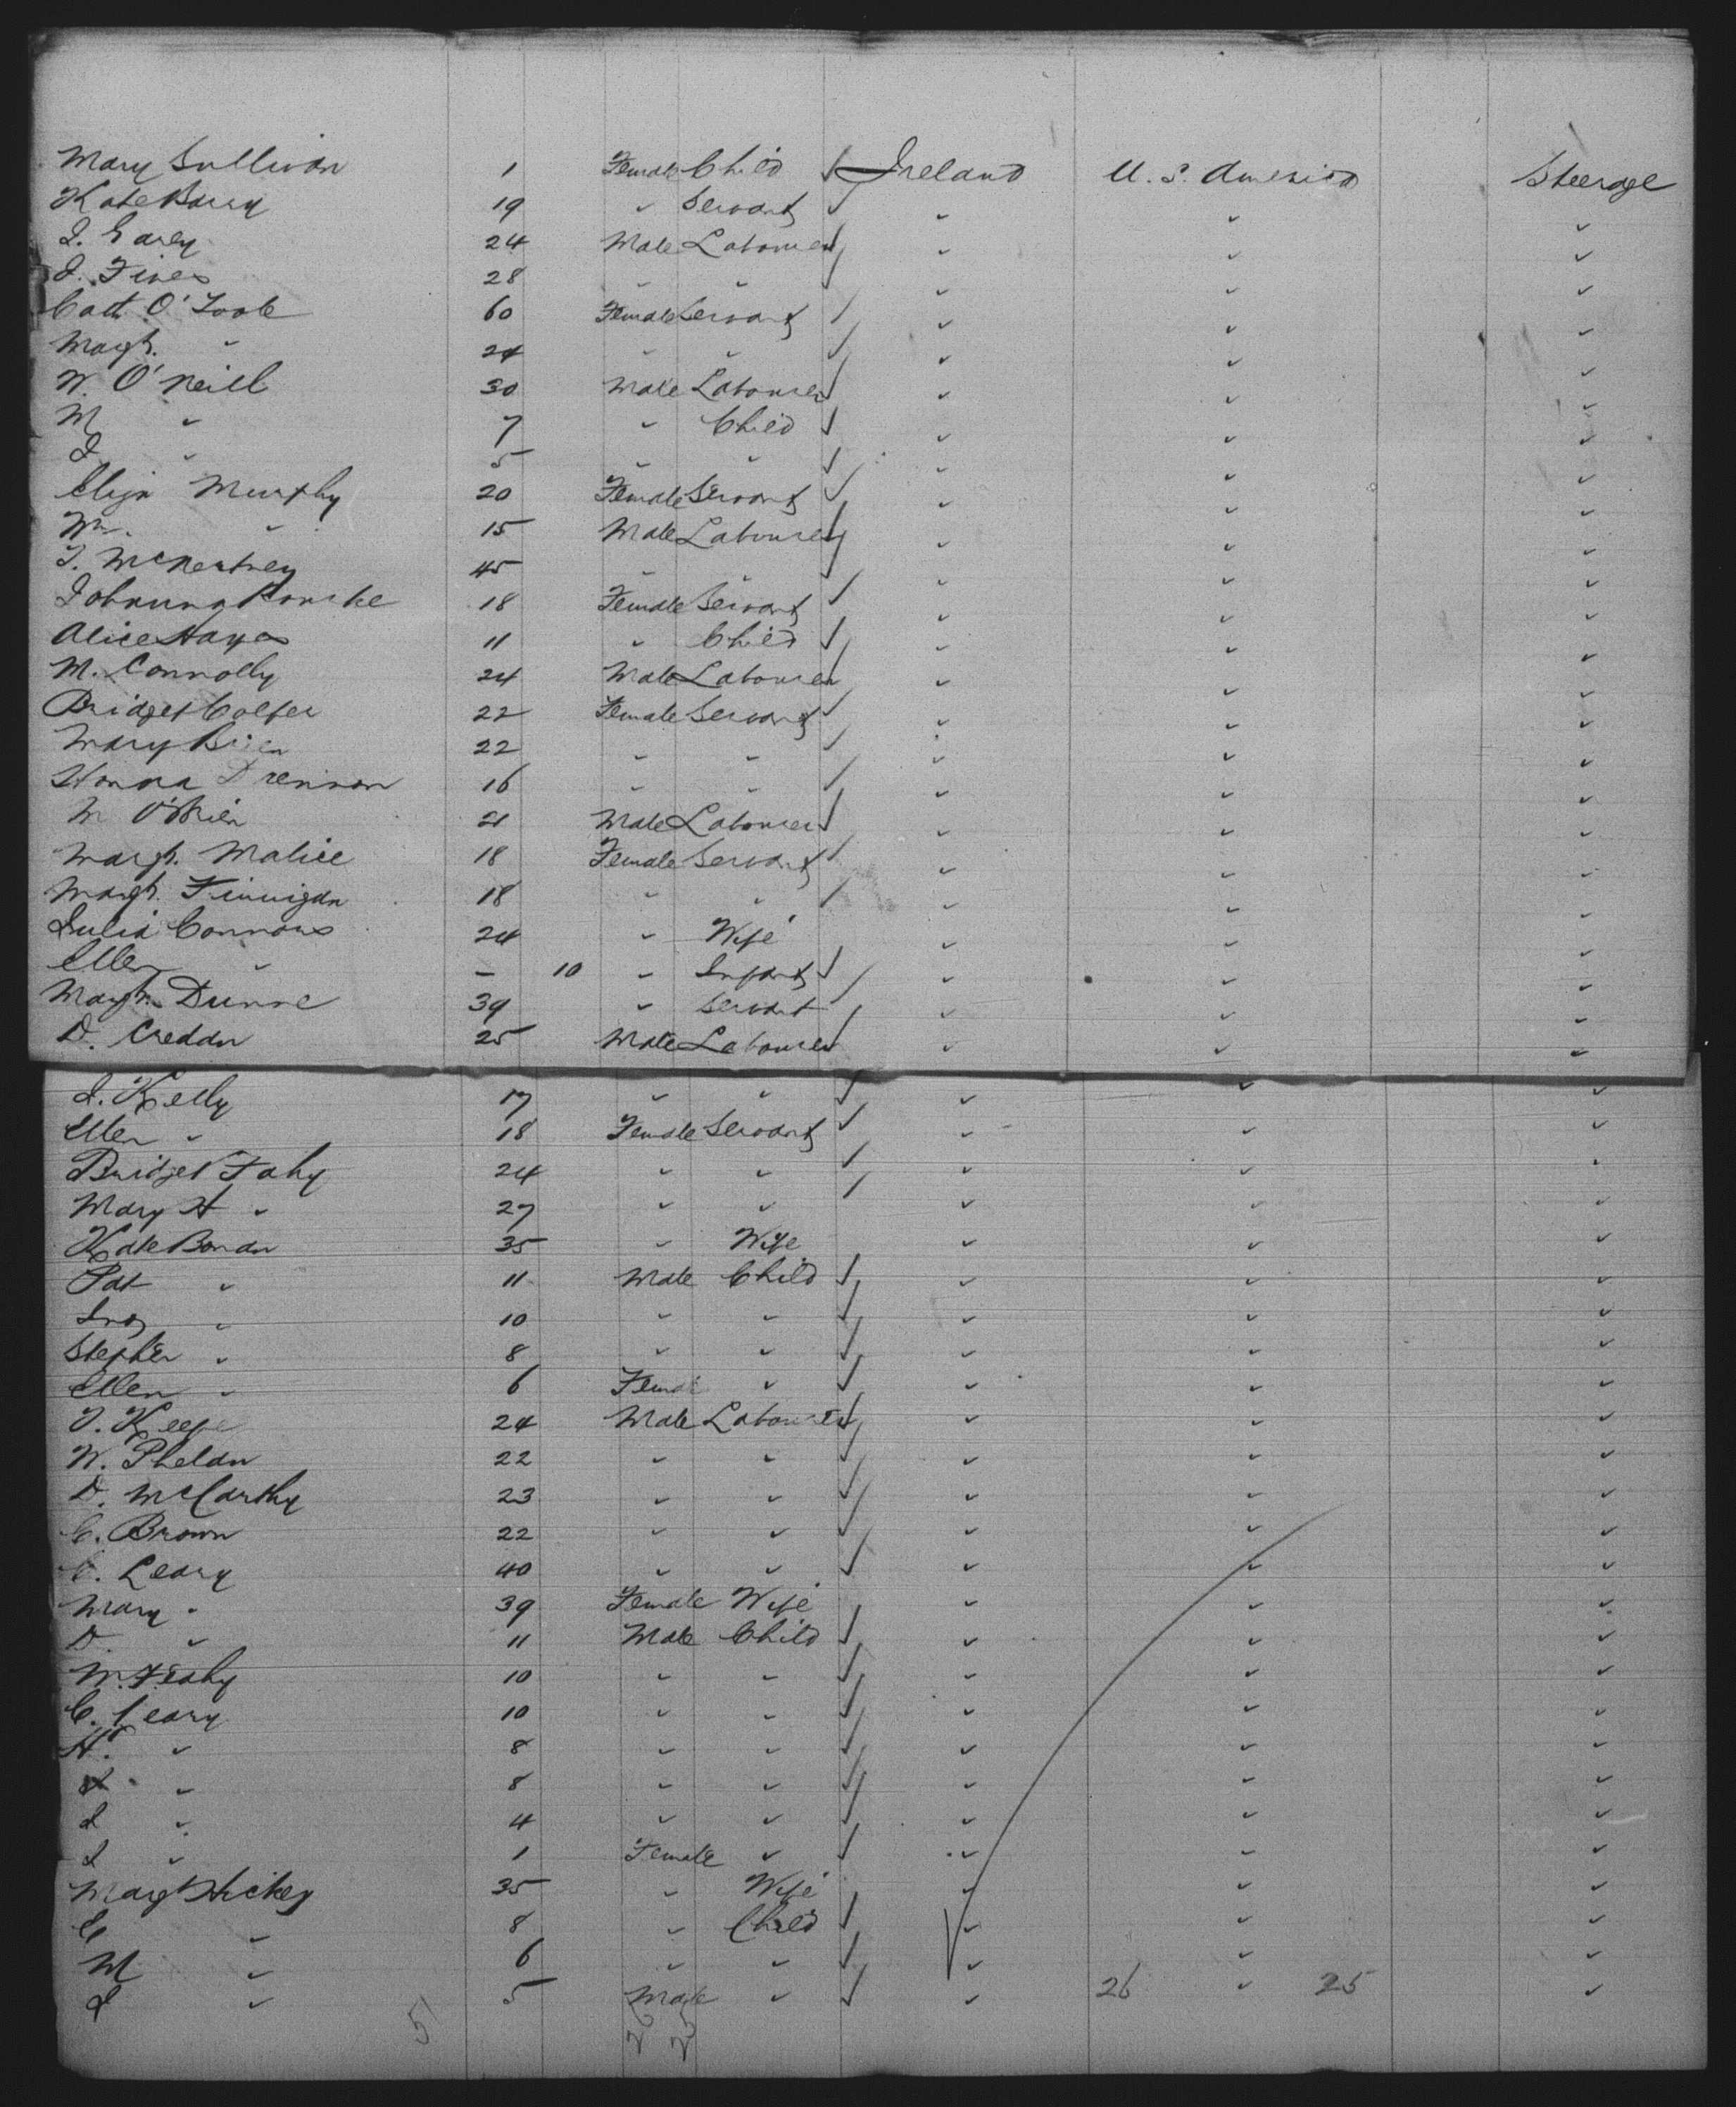 Mary Sullivan 1 Female Child ✓ Ireland U. S. America Steerage
Kate Barry 19 " Servant ✓ " " "
J. Carey 24 Male Labourer ✓ " " "
J. Fives 28 " " ✓ " " "
Cath O'Toole 60 Female Servant ✓ " " "
Margt. " 24 " " ✓ " " "
W. O'Neill 30 Male Labourer ✓ " " "
M " 7 " Child ✓ " " "
J. " 5 " " ✓ " " "
Eliza Murphy 20 Female Servant ✓ " " "
Wm. " 15 Male Labourer ✓ " " "
T. 45 " " ✓ " " "
Johanna Rourke 18 Female Servant ✓ " " "
Alice Hayes 11 " Child ✓ " " "
M. Connolly 24 Male Labourer ✓ " " "
Bridget Colfer 22 Female Servant ✓ " " "
Mary Brien 22 " " ✓ " " "
Honora Drennan 16 " " ✓ " " "
M O'Brien 21 Male Labourer ✓ " " "
Margt. Malice 18 Female Servant ✓ " " "
Margt. Finnigan 18 " " ✓ " " "
Julia Connors 24 " Wife " " "
Ellen " – 10 " Infant ✓ " " "
Margt. Dunne 39 " Servant ✓ " " "
D. Creddan 25 Male Labourer ✓ " " "
J. Kelly 17 " " ✓ " " "
Ellen " 18 Female Servant ✓ " " "
Bridget Fahy 24 " " ✓ " " "
Mary A " 27 " " ✓ " " "
Kate Bondan 35 " Wife " " "
Pat " 11 Male Child ✓ " " "
" 10 " " ✓ " " "
Stephen " 8 " " ✓ " " "
Ellen " 6 Female " ✓ " " "
T. Keefe 24 Male Labourer ✓ " " "
W. Phelan 22 " " ✓ " " "
D. McCarthy 23 " " ✓ " " "
C. Brown 22 " " ✓ " " "
C. Leary 40 " " ✓ " " "
Mary " 39 Female Wife " " "
D. " 11 Male Child ✓ " " "
M. 10 " " ✓ " " "
C. Leary 10 " " ✓ " " "
H. " 8 " " ✓ " " "
" 8 " " ✓ " " "
J " 4 " " ✓ " " "
J " 1 Female " ✓ " " "
Margt Hickey 35 " Wife " " "
C " 8 " Child ✓ " " "
M " 6 " " ✓ " " "
J " 5 Male " ✓ " 26 " 25 "
51 26 25